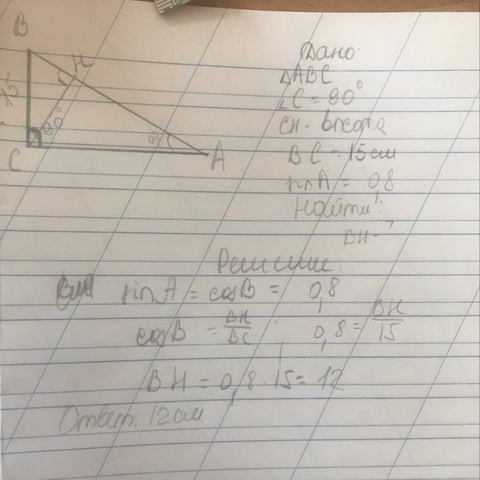 B
H
15
90°
C
0,8
A
Дано:
△ABC
∠C = 90°
CH - высота
BC = 15 см
sin A = 0,8
Найти:
BH - ?
Решение:
sin A = cos B = 0,8
cos B = BH/BC ; 0,8 = BH/15
BH = 0,8 · 15 = 12
Ответ: 12 см